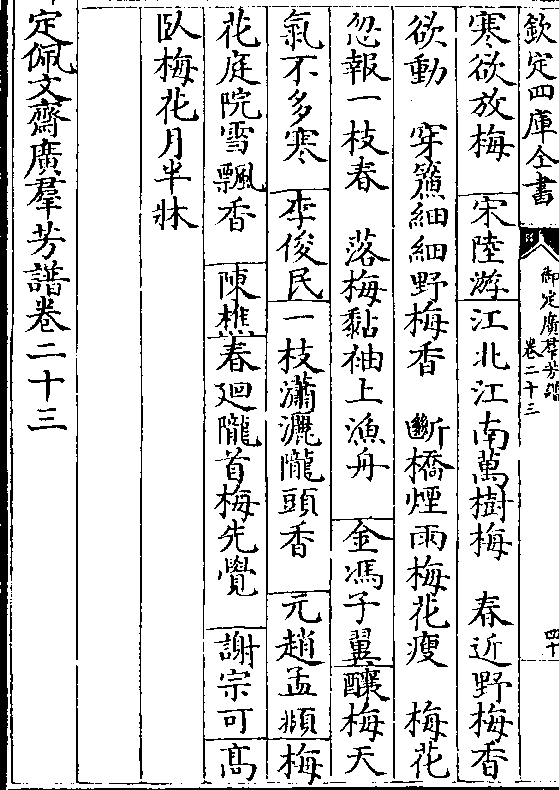 欽定四庫全書
御定廣群芳譜
卷二十三
四十
寒欲放梅 宋陸游江北江南萬樹梅 春近野梅香
欲動 穿籬細細野梅香 斷橋煙雨梅花瘦 梅花
忽報一枝春 落梅黏袖上漁舟 金馮子翼釀梅天
氣不多寒 李俊民一枝瀟灑隴頭香 元趙孟頫梅
花庭院雪飄香 陳樵春迴隴首梅先覺 謝宗可高
臥梅花月半牀
定佩文齋廣羣芳譜卷二十三